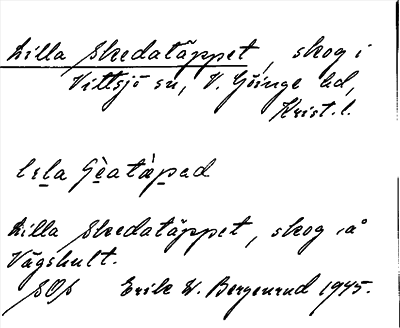 Lilla Skedatäppet, skog i
Vittsjö sn, V. Göinge hd,
Krist. l.
Lilla Skedatäppet, skog å
Vågshult.
Erik W. Bergenrud 1945.